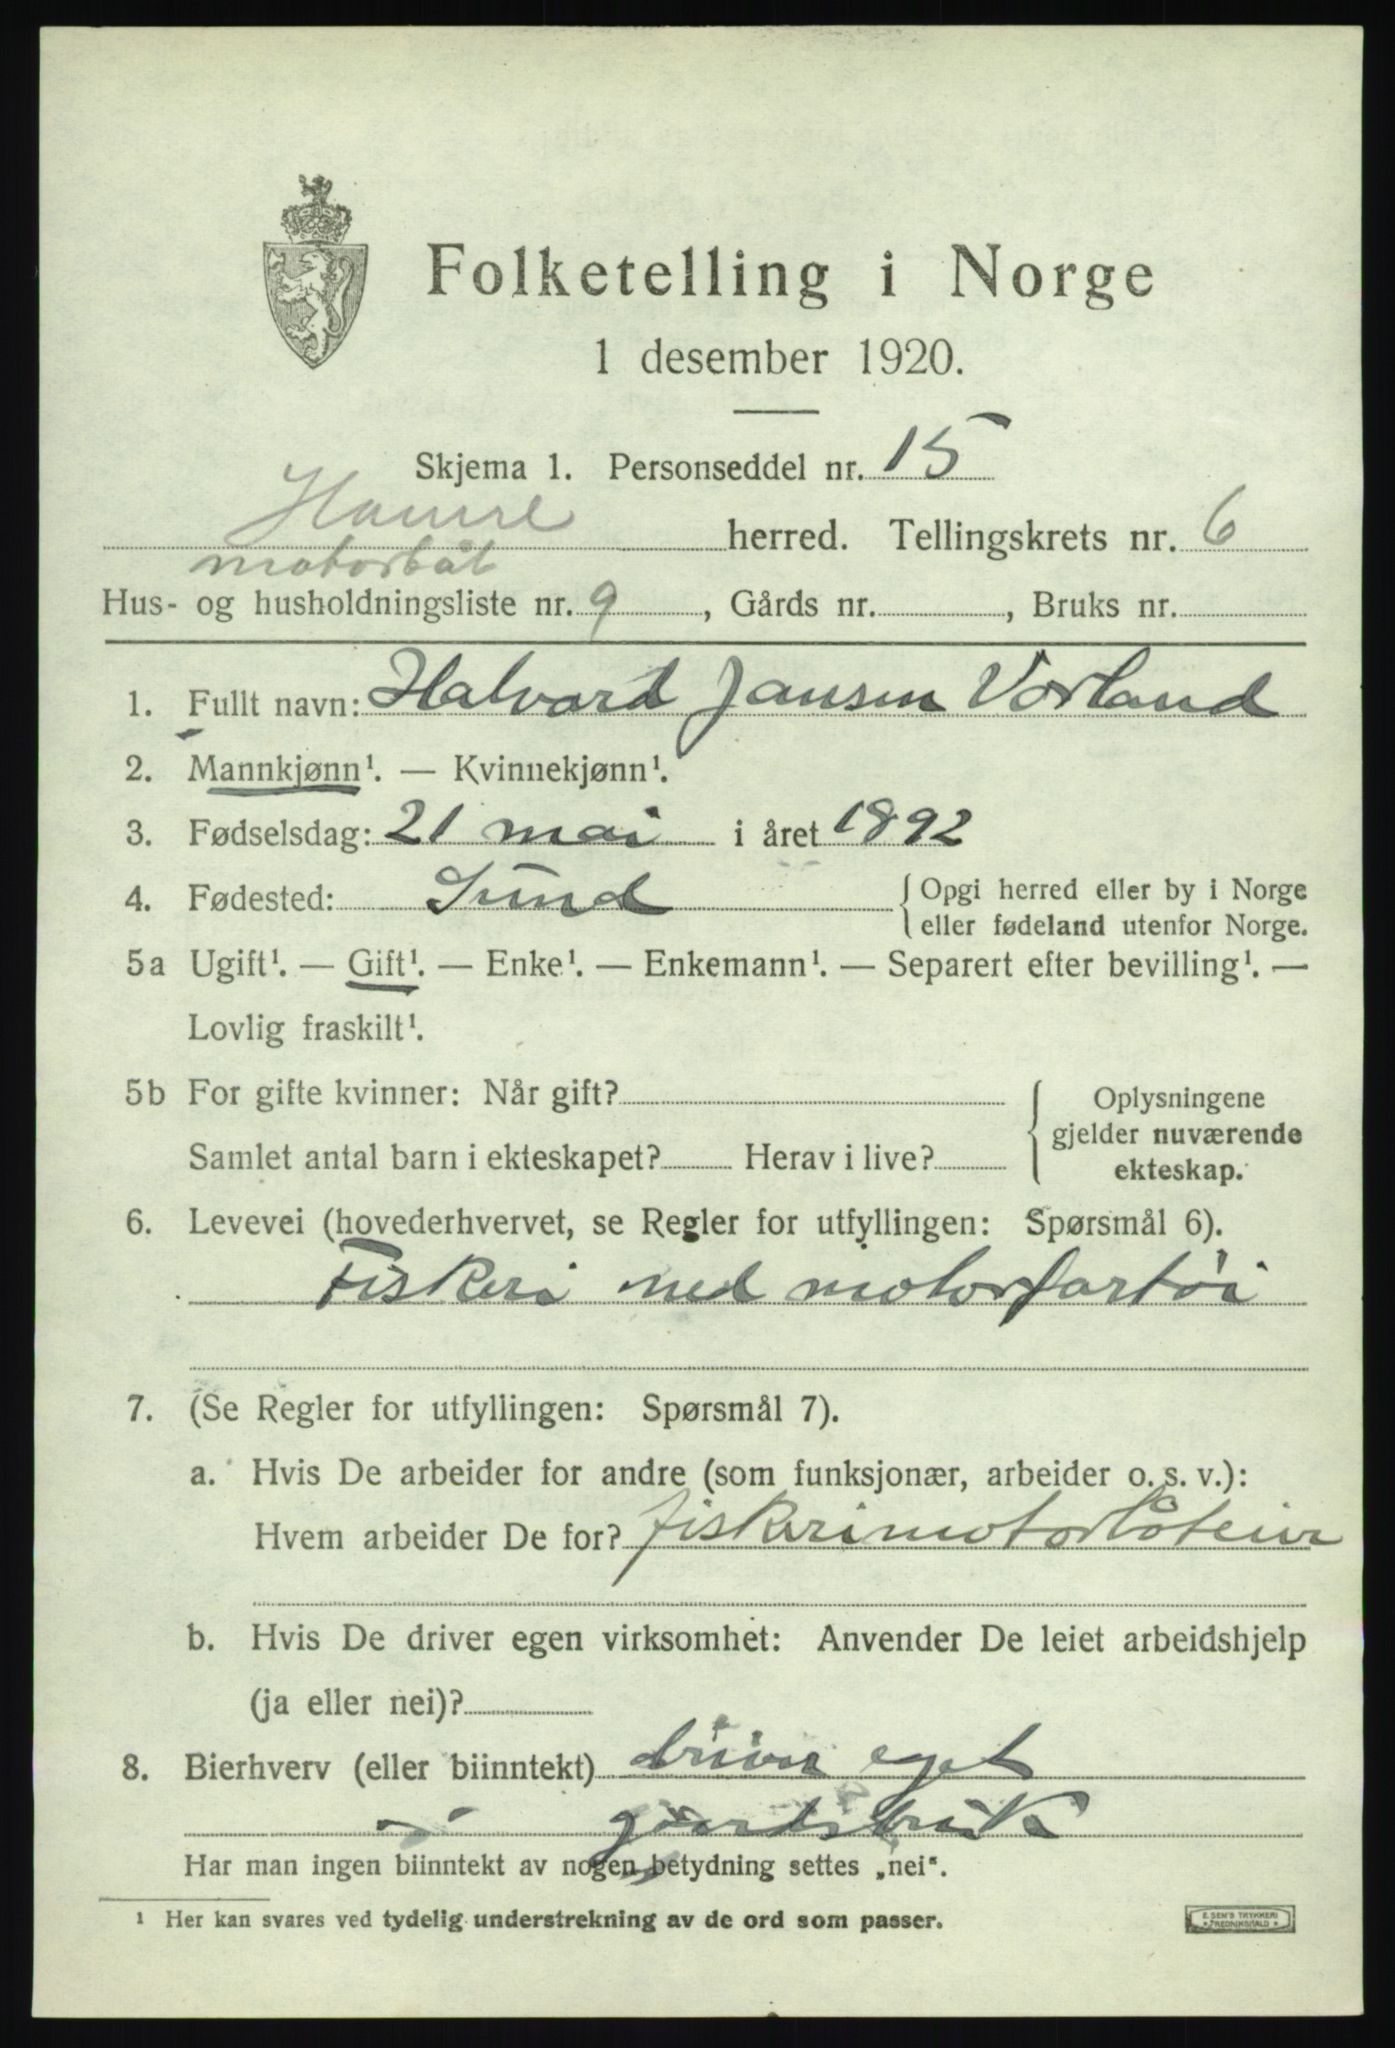 Folketelling i Norge
1 desember 1920.
Skjema 1. Personseddel nr. 15
Hamre herred. Tellingskrets nr. 6
motorbåt
Hus- og husholdningsliste nr. 9, Gårds nr. , Bruks nr.
1. Fullt navn: Halvard Jansen Vorland
2. Mannkjønn¹. — Kvinnekjønn¹.
3. Fødselsdag: 21 mai i året 1892
4. Fødested: Sund { Opgi herred eller by i Norge
eller fødeland utenfor Norge.
5a Ugift¹. — Gift¹. — Enke¹. — Enkemann¹. — Separert efter bevilling¹. —
Lovlig fraskilt¹.
5b For gifte kvinner: Når gift? { Oplysningene
gjelder nuværende
Samlet antal barn i ekteskapet? Herav i live?
ekteskap.
6. Levevei (hovederhvervet, se Regler for utfyllingen: Spørsmål 6).
Fiskeri med motorfartøi
7. (Se Regler for utfyllingen: Spørsmål 7).
a. Hvis De arbeider for andre (som funksjonær, arbeider o. s. v.):
Hvem arbeider De for? fiskerimotorbåteier
b. Hvis De driver egen virksomhet: Anvender De leiet arbeidshjelp
(ja eller nei)?
8. Bierhverv (eller biinntekt) driver eget
gaardsbruk
Har man ingen biinntekt av nogen betydning settes „nei“.
¹ Her kan svares ved tydelig understrekning av de ord som passer.